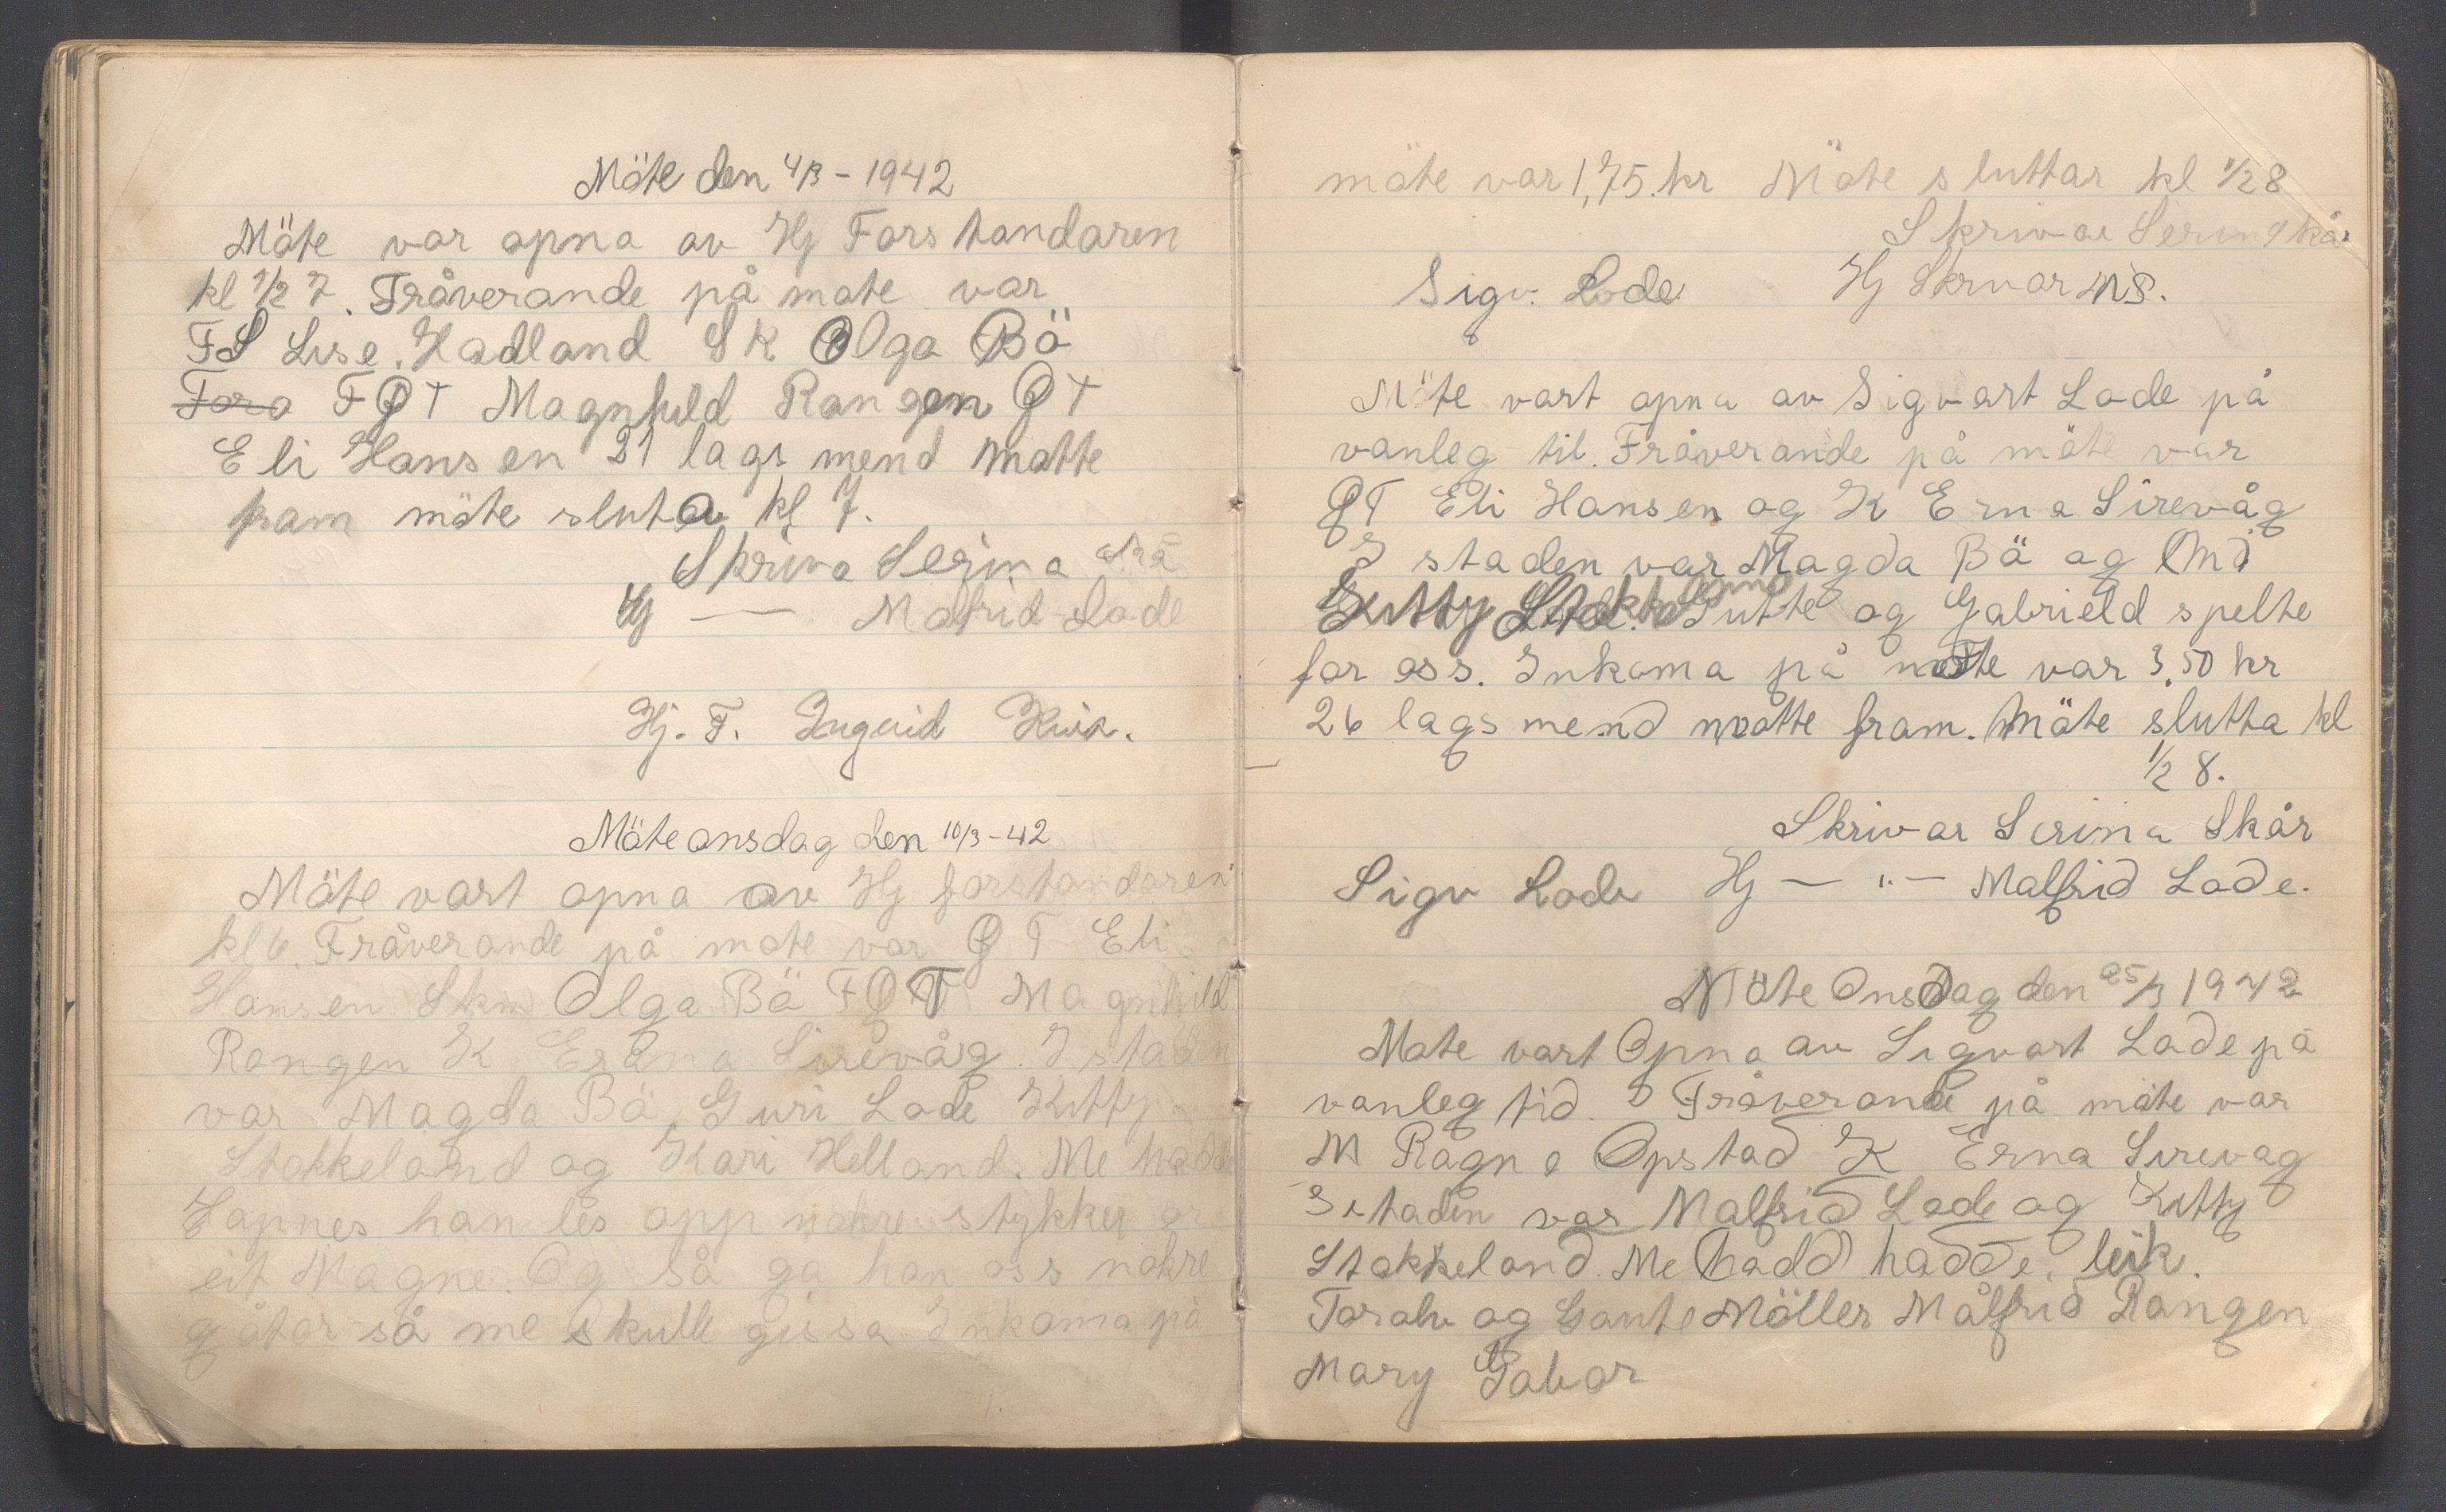 Möte den 4/3 - 1942
Möte var opna av Hj Forstandaren
kl 1/2 7. Fråverande på mote var
FS Lise Hadland SK Olga Bö
Fora FQT Magnhild Rangen QT
Eli Hansen 21 lags mend møtte
fram möte sluta kl 7.
Skriva Serina Skå
Hj — Matrid Lode
Hj. F. Ingvid Kvia.
Möte onsdag den 10/3 - 42
Möte vart opna av Hj forstandaren
kl 6. Fråverande på mote var QT Eli
Hansen Skm Olga Bö FQT Magnhild
Rangen K Erna Sirevåg. I staden
var Magda Bö, Guri Lode Kitty
Stokkeland og Kari Helland. Me hadde
Hapnes han les opp nokre stykker or
eit Magne. Og så ga han oss nokre
gåtor så me skulle gissa. Inkoma på
möte var 1,75. kr Möte sluttar kl 1/2 8
Skrivar Serina Skår
Sigv. Lode Hj Skrivar MS.
Möte vart opna av Sigvart Lode på
vanleg tit. Fråverande på möte var
QT Eli Hansen og K Erna Sirevåg
I staden var Magda Bö og
Gutte og Gabrield spelte
for oss. Inkoma på møte var 3,50 kr
26 lags mend møtte fram. Möte slutta kl
1/2 8.
Skrivar Serina Skår
Sigv Lode Hj — „ — Malfrid Lode.
Möte Onsdag den 25/3 1942
Mote vart Opna av Sigvart Lode på
vanleg tid. Fråverande på möte var
M Ragna Opstad K Erna Sirevag
I staden var Malfrid Lode og Kitty
Stokkeland. Me hadd hadde leik.
Toralv og Gaute Möller Målfrid Rangen
Mary Gabar